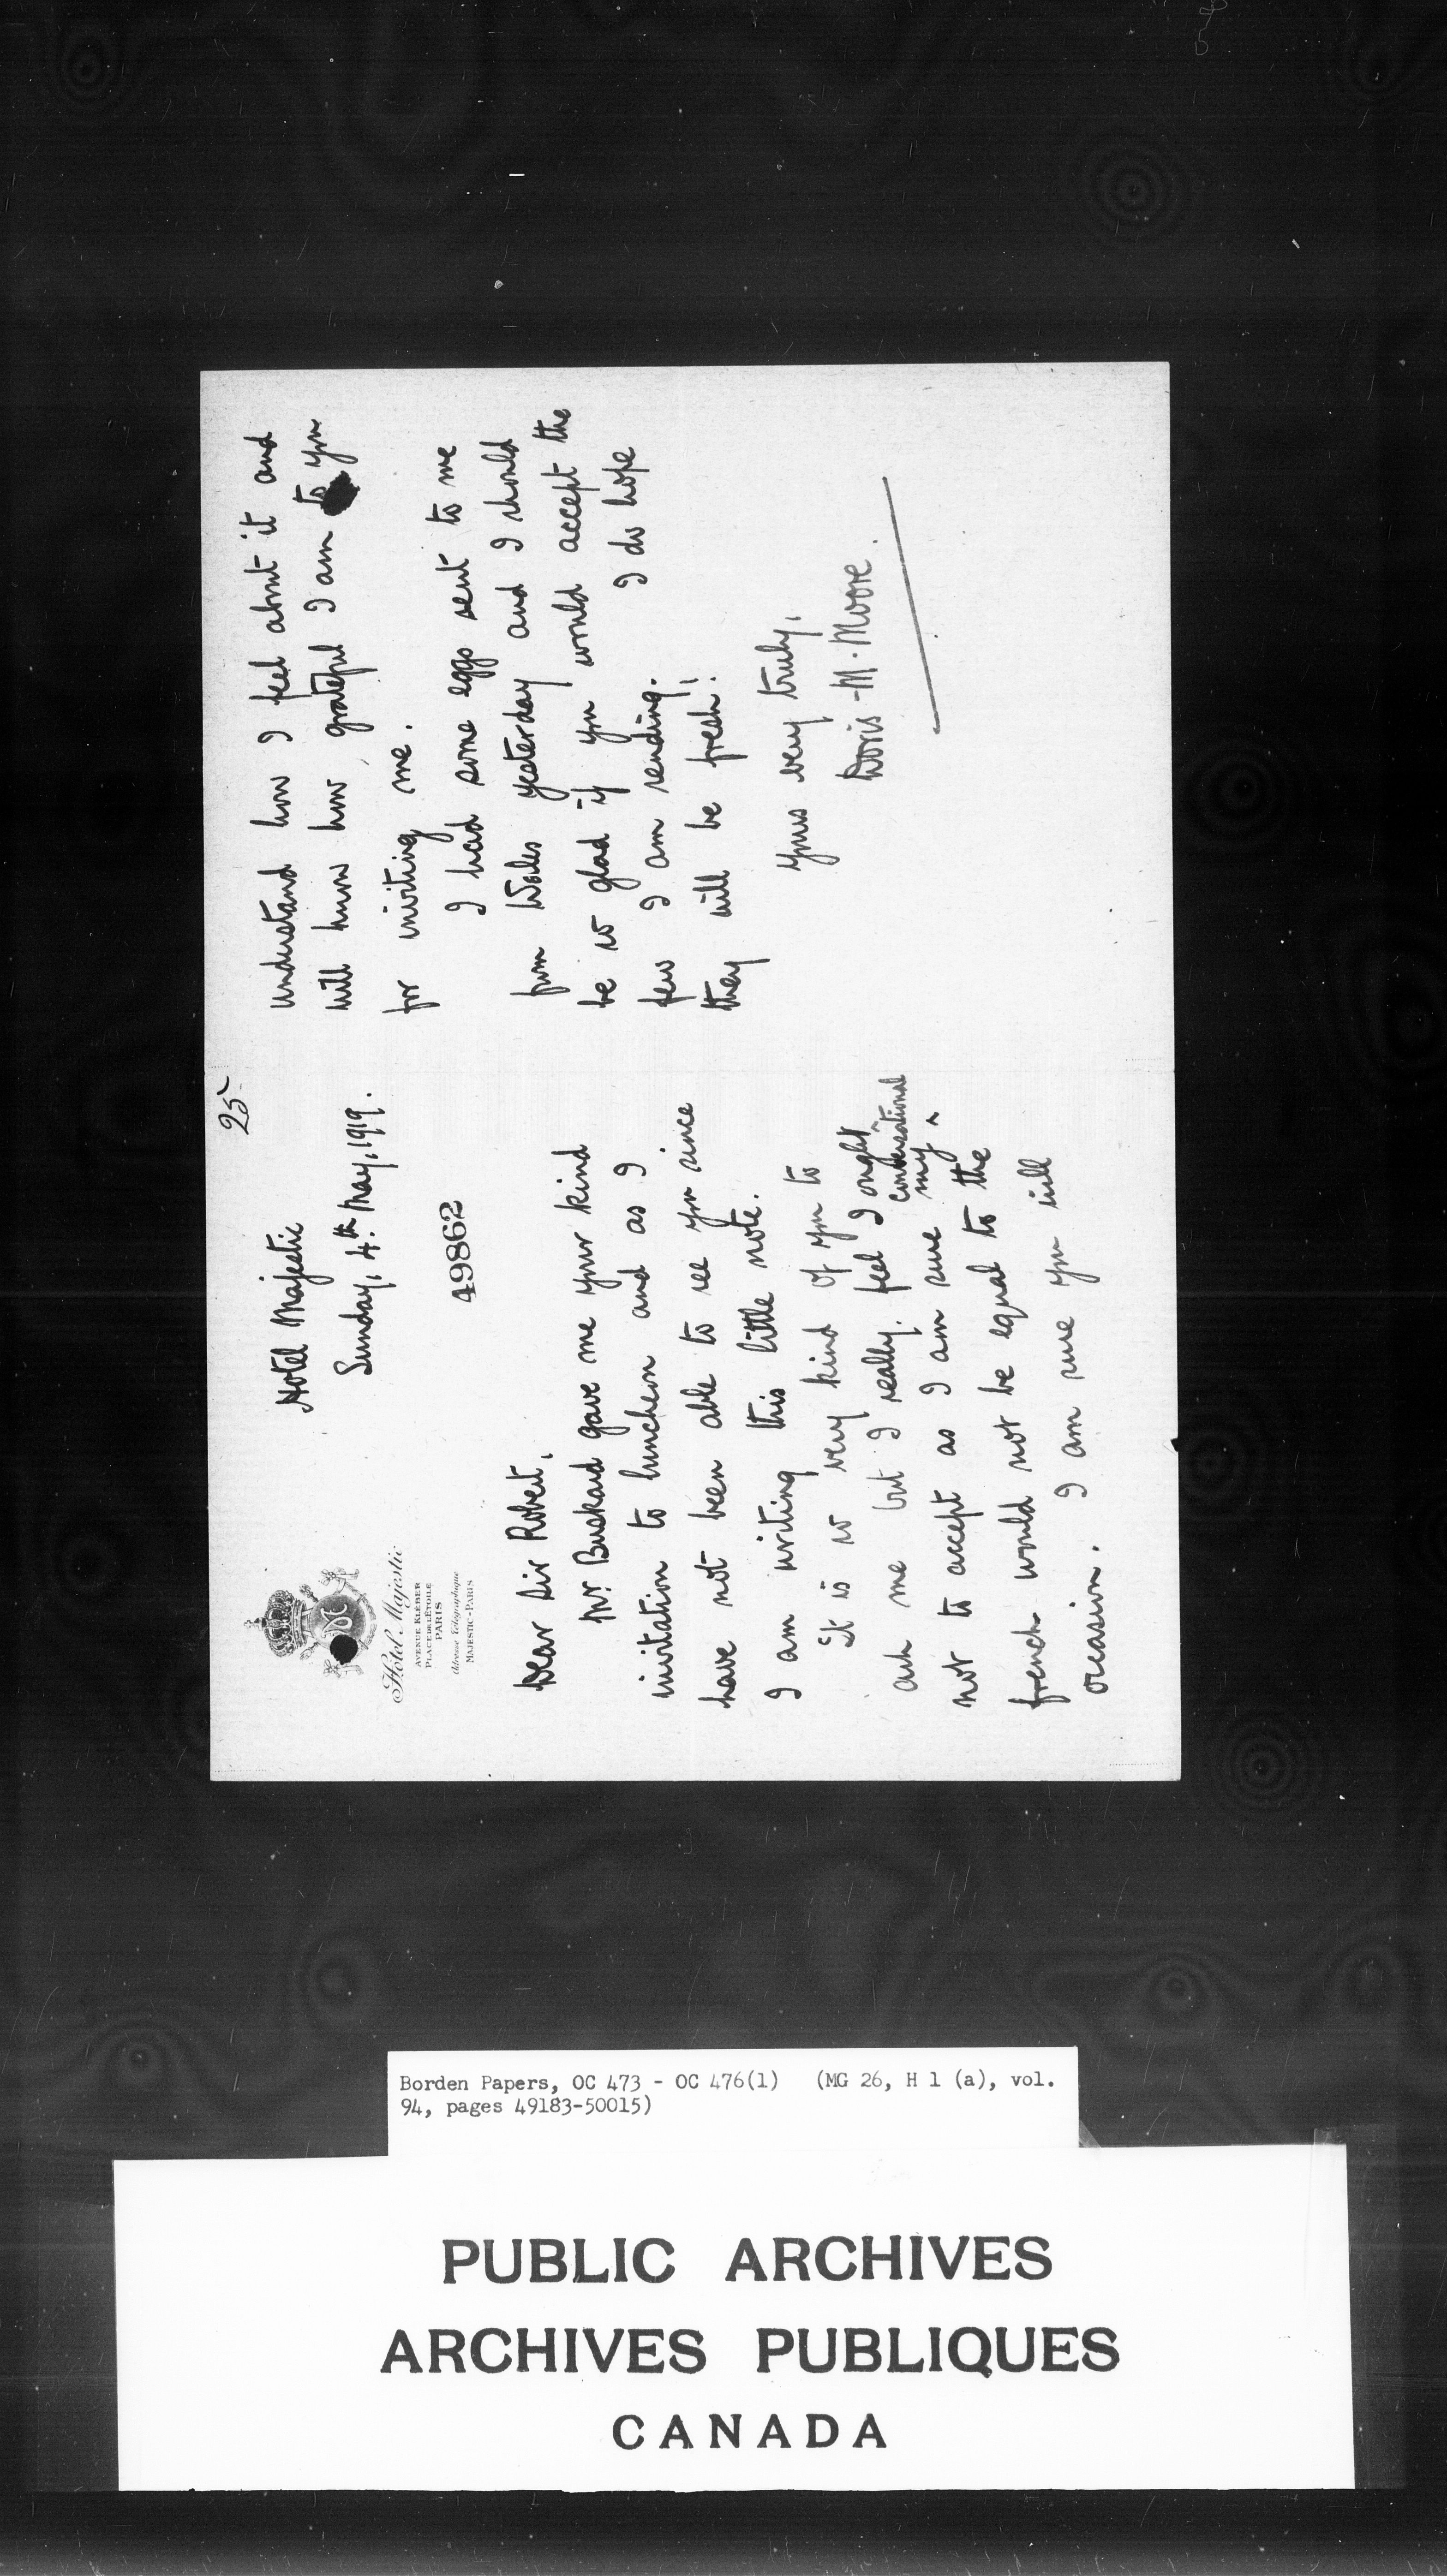 25
Hôtel Majestic
AVENUE KLÉBER
PLACE DE L'ÉTOILE
PARIS
Adresse Télégraphique
MAJESTIC-PARIS
Hotel Majestic
Sunday, 4th May, 1919.
49862
Dear Sir Robert,
Mr. Buskard gave me your kind
invitation to luncheon and as I
have not been able to see you since
I am writing this little note.
It is so very kind of you to
ask me but I really feel I ought
not to accept as I am sure my ^ conversational
french would not be equal to the
occasion. I am sure you will
understand how I feel about it and
will know how grateful I am to you
for inviting me.
I had some eggs sent to me
from Wales yesterday and I should
be so glad if you would accept the
few I am sending. I do hope
they will be fresh!!
Yours very truly,
Doris M. Moore.
Borden Papers, OC 473 - OC 476(1) (MG 26, H 1 (a), vol.
94, pages 49183-50015)
PUBLIC ARCHIVES
ARCHIVES PUBLIQUES
CANADA